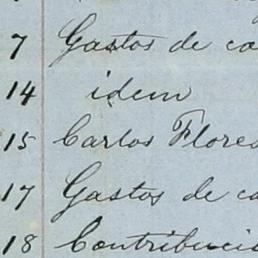 7 Gastos de ca
14 idem
15 Carlos Flores
17 Gastos de ca
18 Contribucio